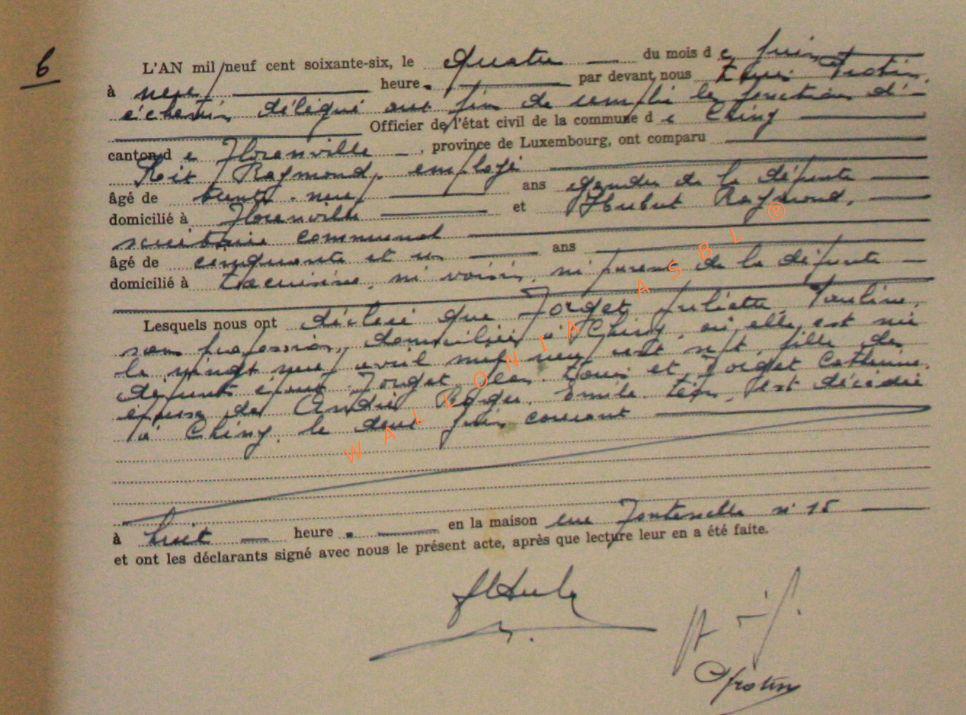 6
L'AN mil neuf cent soixante-six, le quatre du mois d e juin
à neuf heure s par devant nous Louis Frotin,
échevin délégué aux fin de remplir les fonctions d'
Officier de l'état civil de la commune d e Chiny
canton d e Florenville, province de Luxembourg, ont comparu
Raymond, employé
âgé de trente neuf ans gendre de la défunte
domicilié à Florenville et Hubert Raymond,
secrétaire communal
âgé de cinquante et un ans
domicilié à ni voisin, ni parent de la défunte
Lesquels nous ont déclaré que Forget Juliette Pauline,
sans profession, domiciliée à Chiny, où elle est née
le vingt neuf avril mil neuf cent sept, fille des
défunts époux Forget et Forget Catherine,
épouse de André Roger Emile Léon, est décédée
à Chiny le deux juin courant
à huit heure s en la maison rue Fontenelle n° 15
et ont les déclarants signé avec nous le présent acte, après que lecture leur en a été faite.
WALLONIA ASBL ©
Frotin